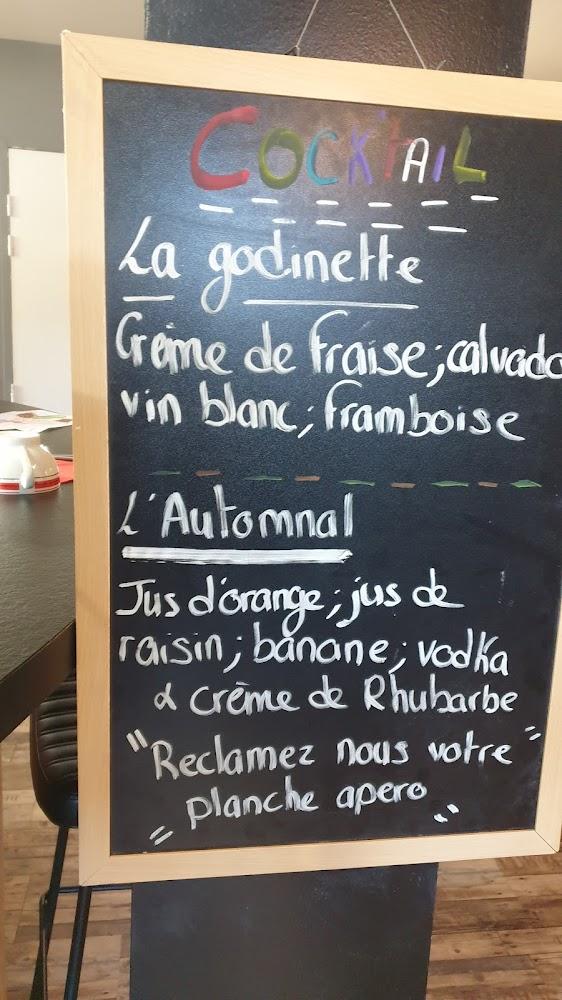 COCK'TAIL
La godinette
Crème de fraise; calvado
vin blanc; framboise
L'Automnal
Jus d'orange; jus de
raisin; banane; vodka
& crème de Rhubarbe
"Reclamez nous votre
planche apero"